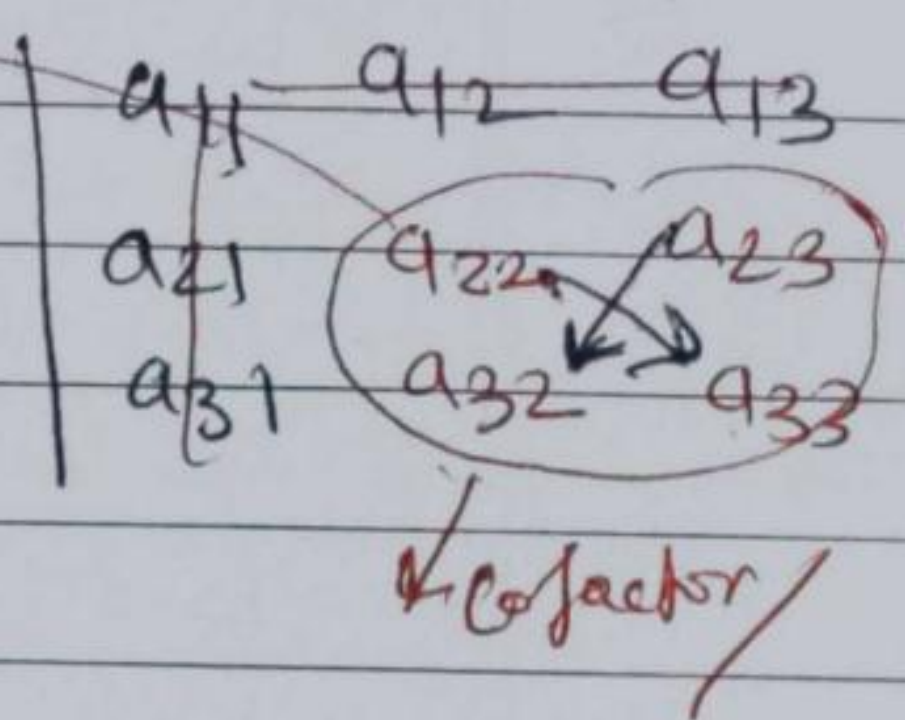 a11 a12 a13
a21 a22 a23
a31 a32 a33
Cofactor